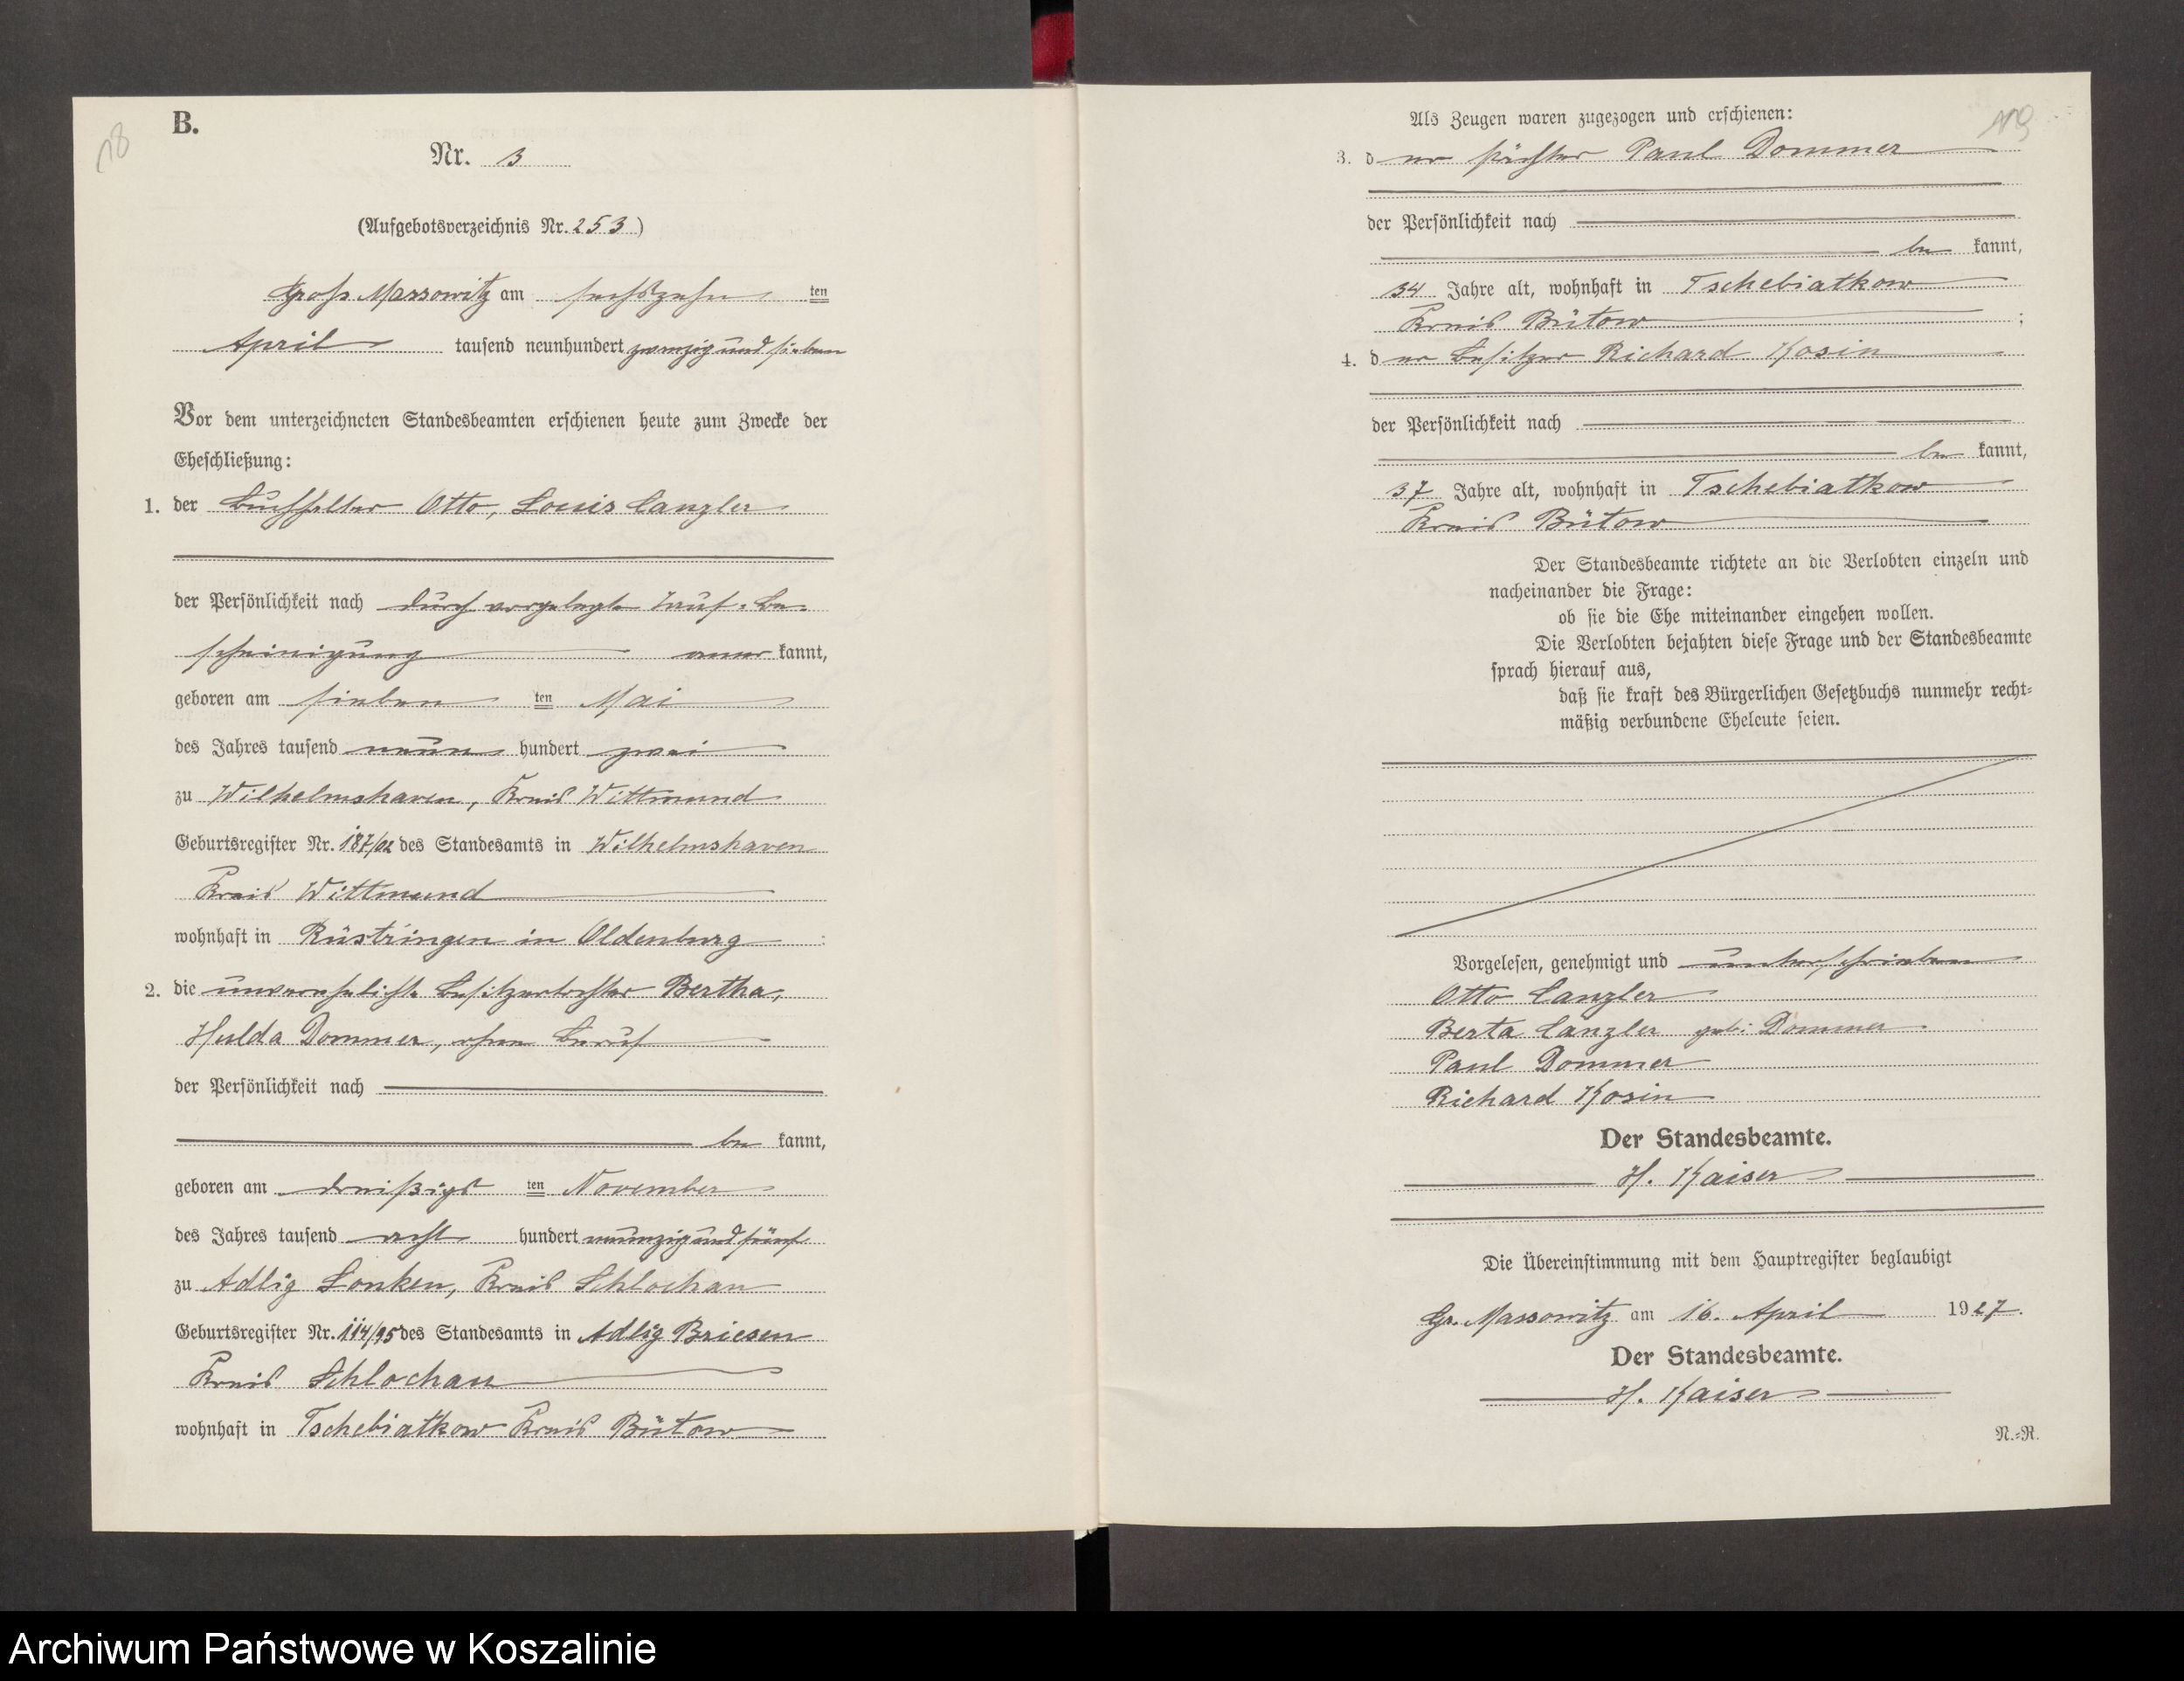 18
B.
Nr. 3
(Aufgebotsverzeichnis Nr. 253)
Groß Massowitz am sechszehn ten
April tausend neunhundert zwanzig und sieben
Vor dem unterzeichneten Standesbeamten erschienen heute zum Zwecke der
Eheschließung:
1. der Buchhalter Otto, Louis Canzler
der Persönlichkeit nach durch vorgelegte Tauf-Be-
scheinigung aner kannt,
geboren am sieben ten Mai
des Jahres tausend neun hundert zwei
zu Wilhelmshaven, Kreis Wittmund
Geburtsregister Nr. 187/02 des Standesamts in Wilhelmshaven
Kreis Wittmund
wohnhaft in Rüstringen in Oldenburg ;
2. die unverehelichte Besitzertochter Bertha,
Hulda Dommer, ohne Beruf
der Persönlichkeit nach
be kannt,
geboren am dreißigs ten November
des Jahres tausend acht hundert neunzig und fünf
zu Adlig Lonken, Kreis Schlochau
Geburtsregister Nr. 114/95 des Standesamts in Adlig Briesen
Kreis Schlochau
wohnhaft in Tschebiatkow Kreis Bütow
119
Als Zeugen waren zugezogen und erschienen:
3. d er Pächter Paul Dommer
der Persönlichkeit nach
be kannt,
34 Jahre alt, wohnhaft in Tschebiatkow
Kreis Bütow ;
4. d er Besitzer Richard Kosin
der Persönlichkeit nach
be kannt,
37 Jahre alt, wohnhaft in Tschebiatkow
Kreis Bütow
Der Standesbeamte richtete an die Verlobten einzeln und
nacheinander die Frage:
ob sie die Ehe miteinander eingehen wollen.
Die Verlobten bejahten diese Frage und der Standesbeamte
sprach hierauf aus,
daß sie kraft des Bürgerlichen Gesetzbuchs nunmehr recht-
mäßig verbundene Eheleute seien.
Vorgelesen, genehmigt und unterschrieben
Otto Canzler
Berta Canzler geb: Dommer.
Paul Dommer
Richard Kosin
Der Standesbeamte.
H. Kaiser
Die Übereinstimmung mit dem Hauptregister beglaubigt
Gr. Massowitz am 16. April 1927.
Der Standesbeamte.
H. Kaiser
N.-R.
Archiwum Państwowe w Koszalinie